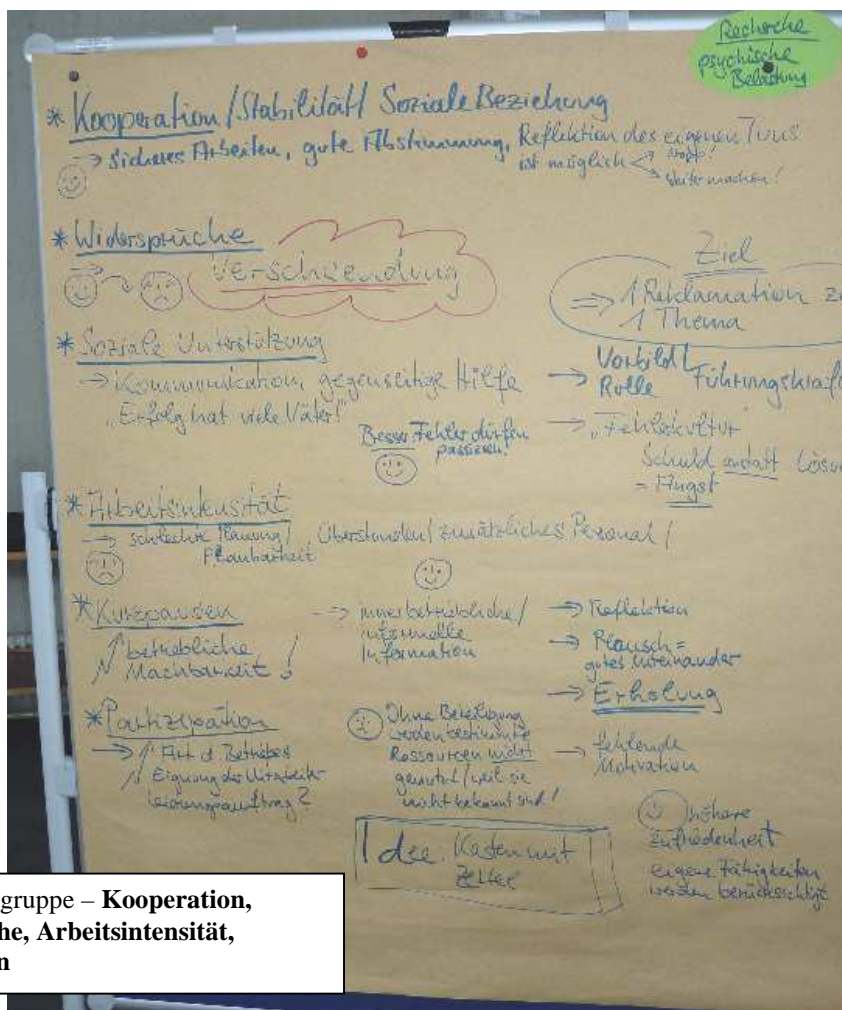 Recherche
psychische
Belastung
* Kooperation / Stabilität / Soziale Beziehung
→ sicheres Arbeiten, gute Abstimmung, Reflektion des eigenen Tuns
ist möglich
→ stopp!
→ weitermachen!
* Widersprüche
Verschwendung
Ziel
⇒ 1 Reklamation
1 Thema
* Soziale Unterstützung
→ Kommunikation, gegenseitige Hilfe
„Erfolg hat viele Väter!"
→ Vorbild
Rolle
Führungskraf
Besser: Fehler dürfen
passieren!
→ „Fehlerkultur"
Schuld anstatt Lösu
= Angst
* Arbeitsintensität
→ schlechte Planung /
Planbarkeit
Überstunden / zusätzliches Personal /
* Kurzpausen
betriebliche
Machbarkeit !
→ innerbetriebliche /
informelle
Information
→ Reflektion
→ Plausch =
gutes Miteinander
→ Erholung
* Partizipation
→ Art d. Betriebes
Eignung der Mitarbeiter
?
Ohne Beteiligung
werden bestimmte
Ressourcen nicht
genutzt / weil sie
nicht bekannt sind!
→ fehlende
Motivation
Idee: Kasten mit
Zettel
höhere
Zufriedenheit
eigene Fähigkeiten
werden berücksichtigt
gruppe – Kooperation,
he, Arbeitsintensität,
n